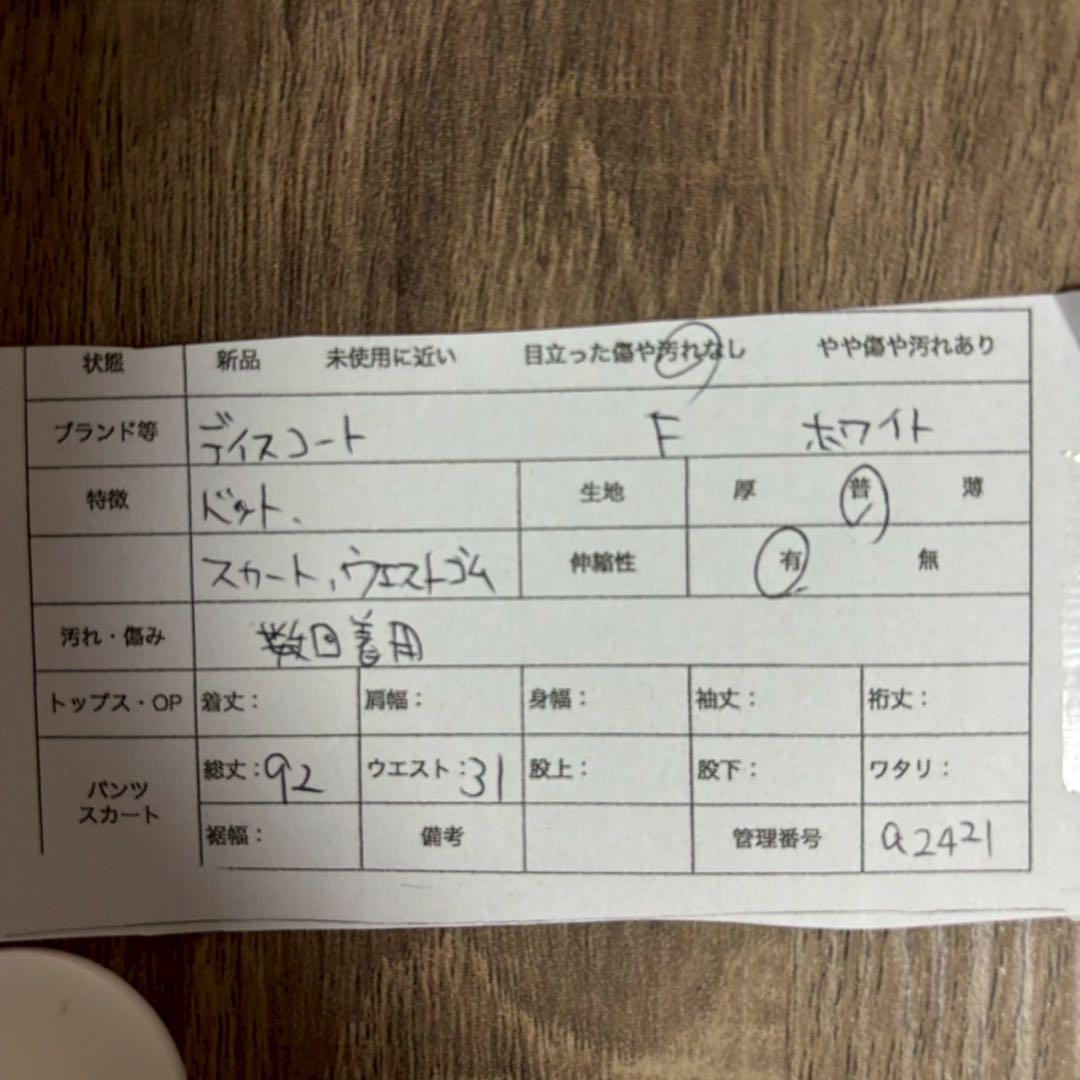 状態 新品 未使用に近い 目立った傷や汚れなし やや傷や汚れあり
ブランド等 ディスコート F ホワイト
特徴 ドット、 生地 厚 普 薄
スカート、ウエストゴム 伸縮性 有 無
汚れ・傷み 数回着用
トップス・OP 着丈： 肩幅： 身幅： 袖丈： 裄丈：
パンツ
スカート
総丈：92 ウエスト：31 股上： 股下： ワタリ：
裾幅： 備考 管理番号 a2421